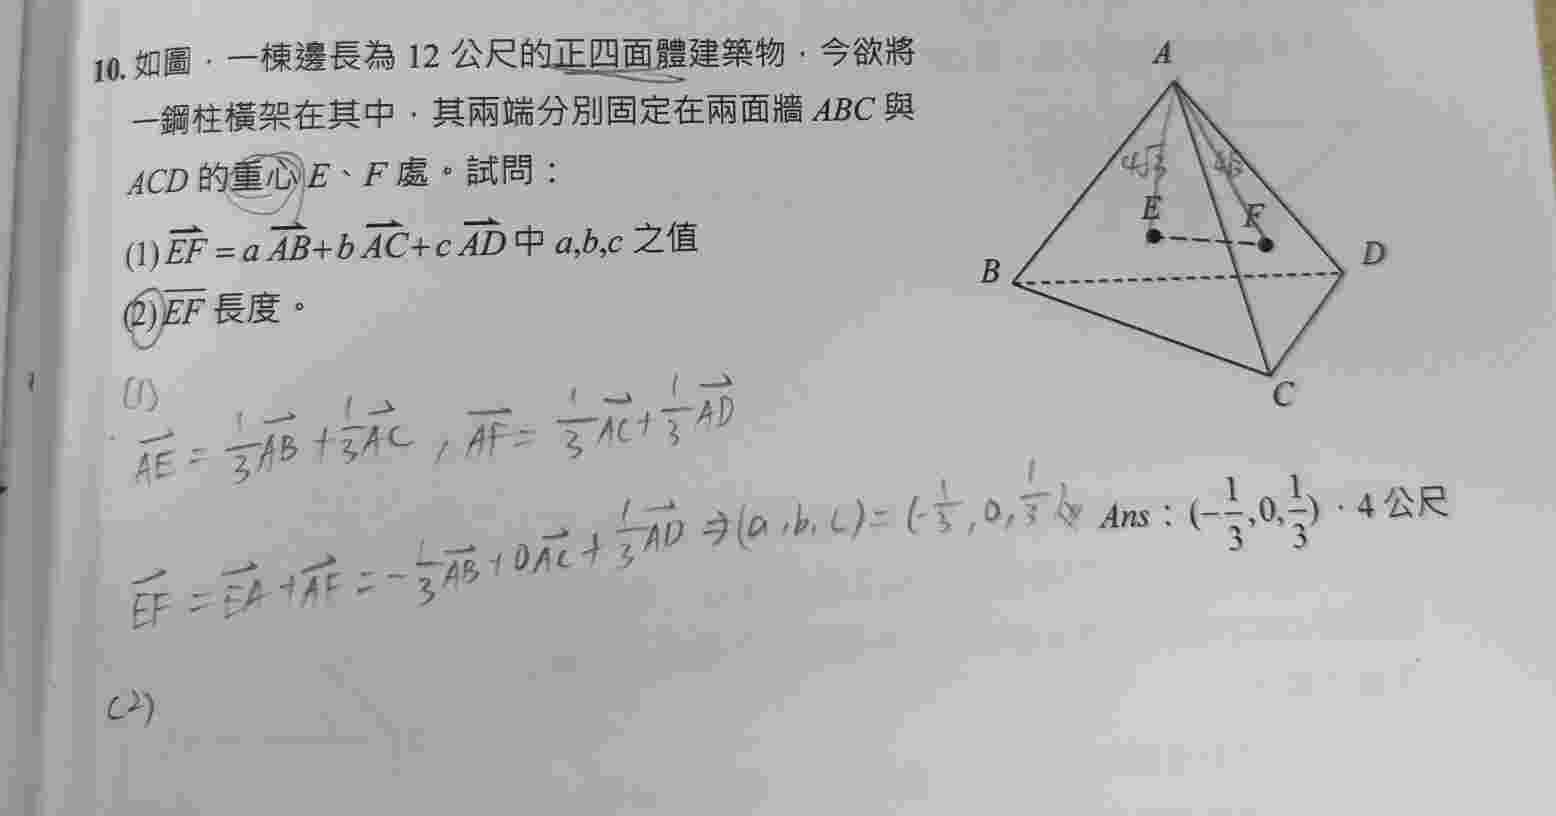 10. 如圖，一棟邊長為 12 公尺的正四面體建築物，今欲將
一鋼柱橫架在其中，其兩端分別固定在兩面牆 ABC 與
ACD 的重心 E、F 處。試問：
(1) \overrightarrow{EF} = a \overrightarrow{AB} + b \overrightarrow{AC} + c \overrightarrow{AD} 中 a,b,c 之值
(2) \overline{EF} 長度。
A
4√3
E
F
B
D
C
(1)
\overrightarrow{AE} = \frac{1}{3}\overrightarrow{AB} + \frac{1}{3}\overrightarrow{AC} , \overrightarrow{AF} = \frac{1}{3}\overrightarrow{AC} + \frac{1}{3}\overrightarrow{AD}
\overrightarrow{EF} = \overrightarrow{EA} + \overrightarrow{AF} = -\frac{1}{3}\overrightarrow{AB} + 0\overrightarrow{AC} + \frac{1}{3}\overrightarrow{AD} ⇒ (a, b, c) = (-\frac{1}{3}, 0, \frac{1}{3})
Ans：(-\frac{1}{3},0,\frac{1}{3})，4 公尺
(2)